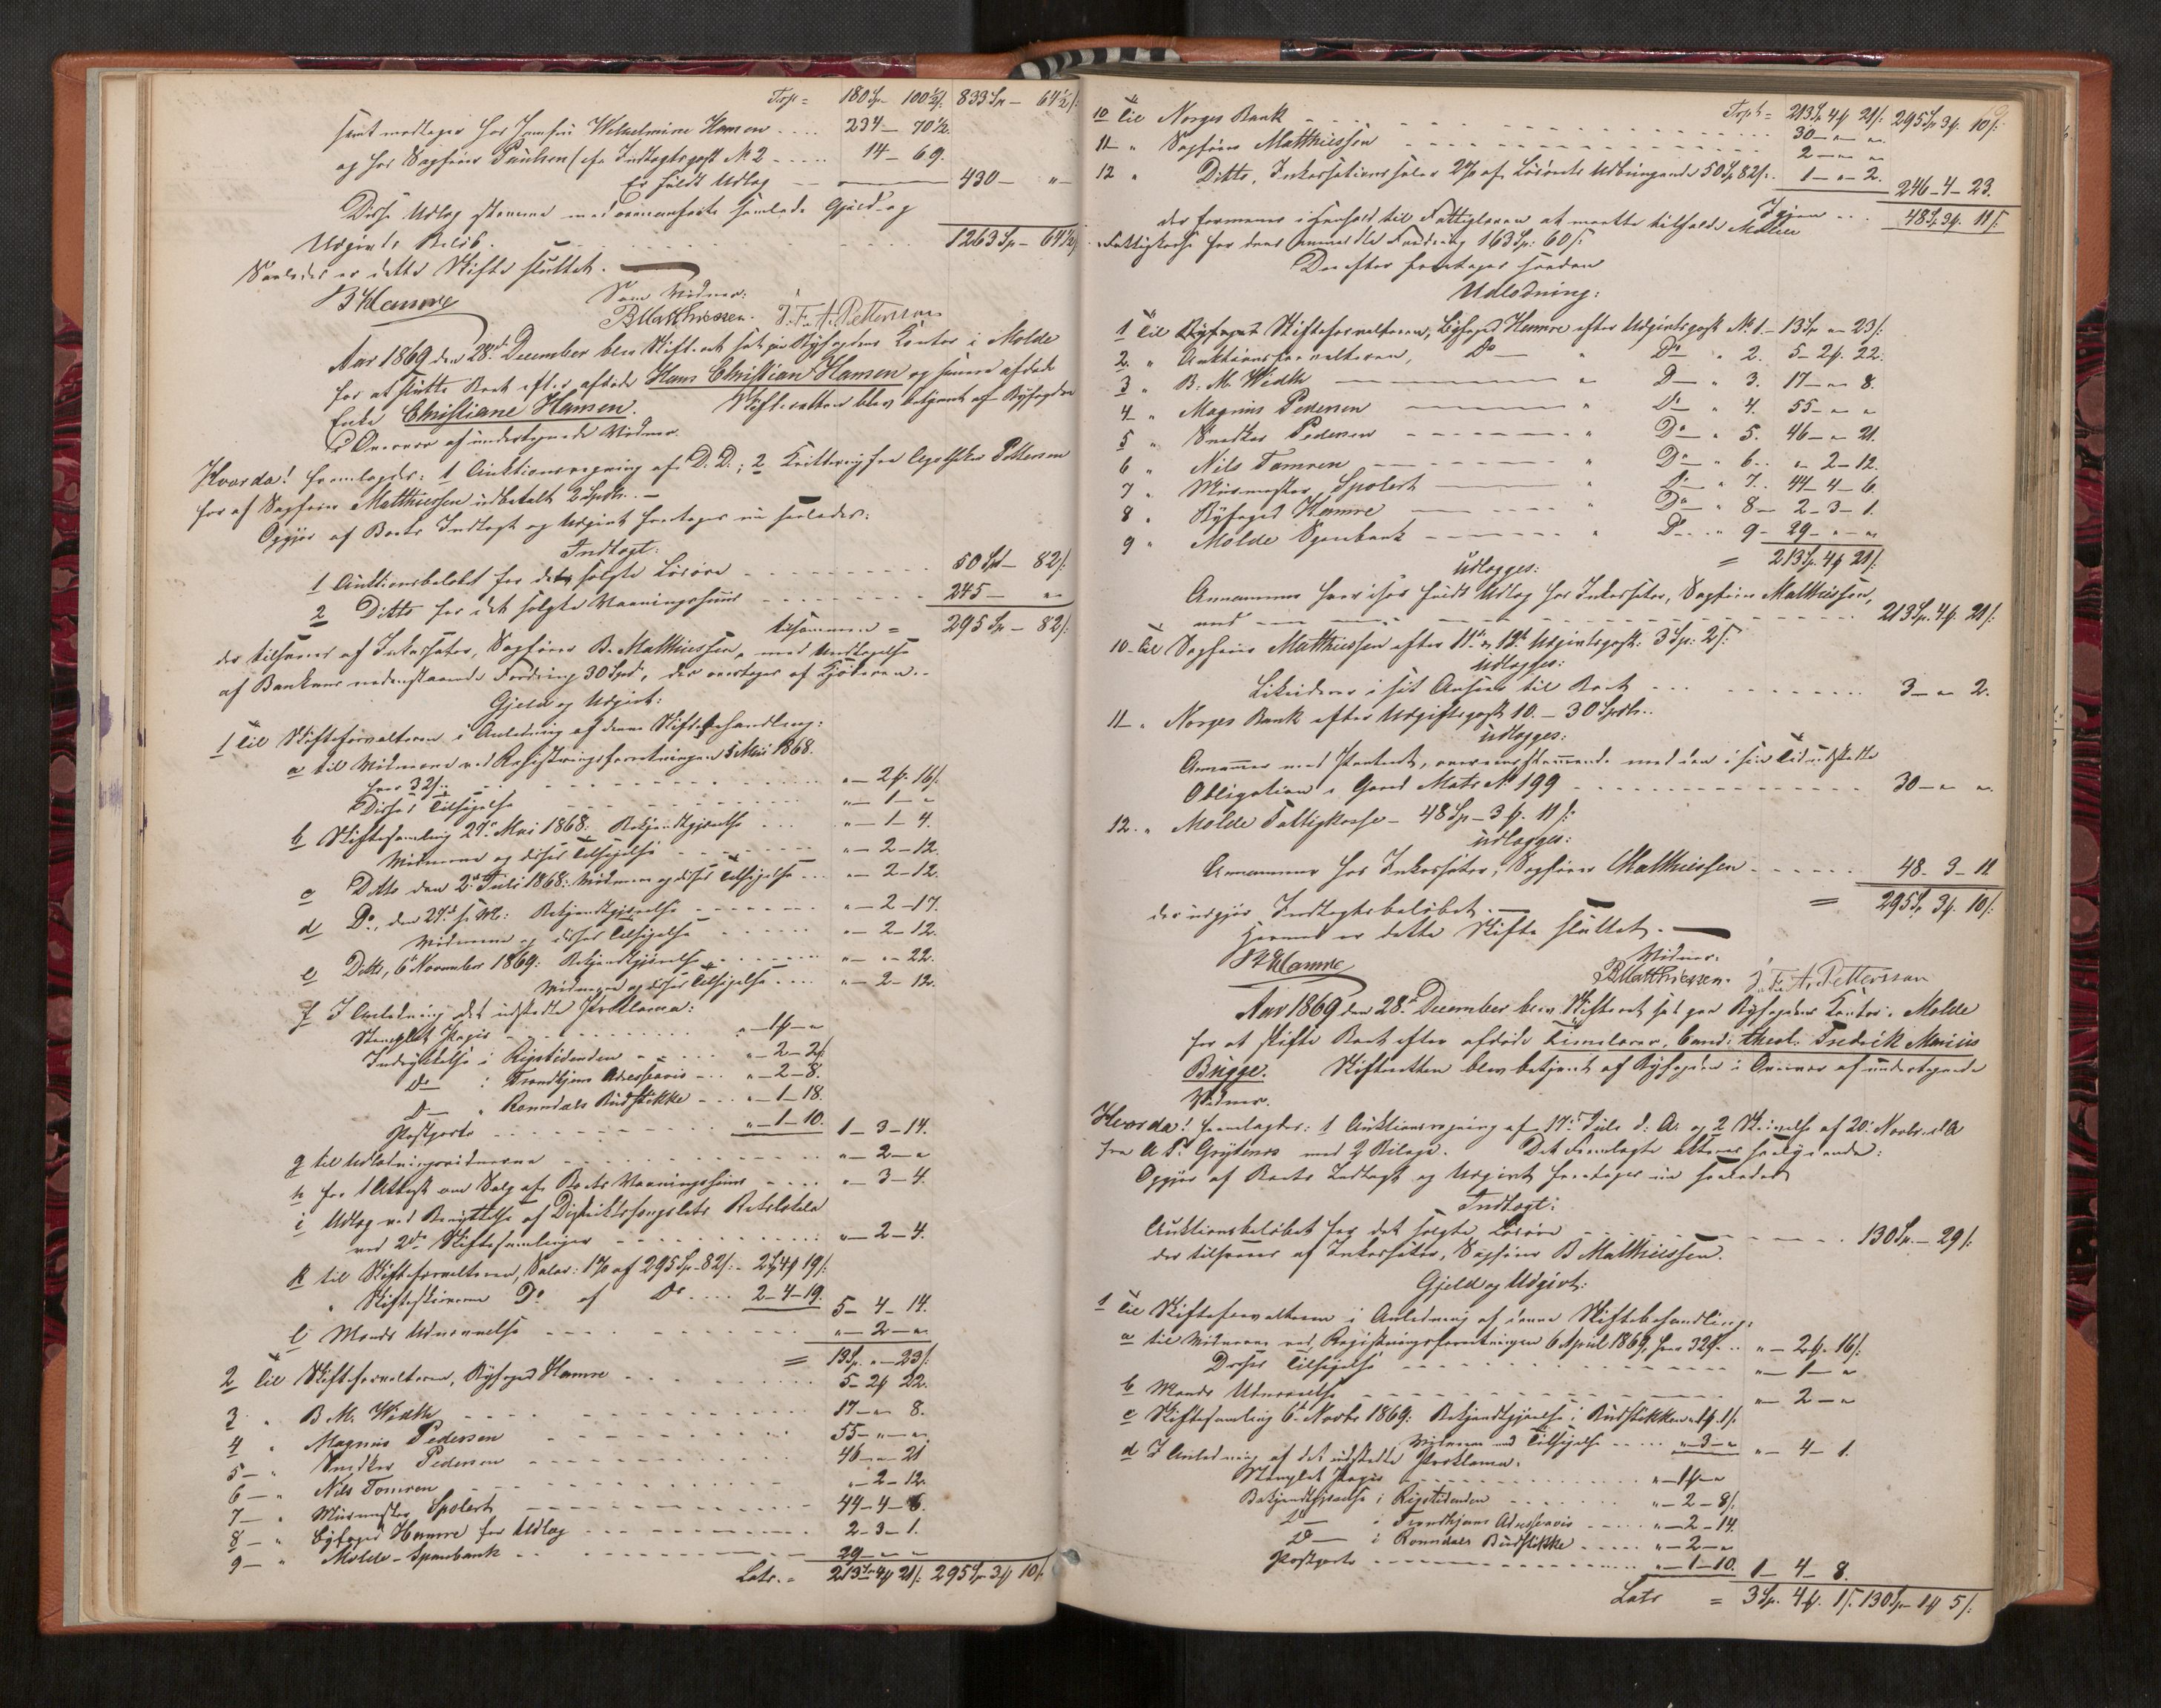 Trsp = 180 Sp - 100½ /: 833 Sp - 64½ /:
samt modtager hos Jomfru Wilhelmine Hansen .... 234 - 70½.
og hos Sagfører Paulsen (cfr Indtægtspost No 2 ..... 14 - 69.
Er fuldt Udlag 430 - "
Disse Udlæg stemme med ovenanførte samlede Gjæld og
Udgivts Beløb. 1263 Sp - 64½ /:
Saaledes er dette Skifte sluttet.
Hamre Som Vidner:
B Matthiessen. J. F. A. Pettersson
Aar 1869 den 28de December blev Skifteret sat paa Byfogdens Kontor i Molde
for at slutte Boet efter afdøde Hans Christian Hansen og hans afdøde
Enke Christiane Hansen. Skifteretten blev betjent af Byfogden
i Overvær af undertegnede Vidner.
Hvorda! fremlagdes: 1 Auktionsregning af D. D.; 2 Kvittering fra Apotheker Pettersen
for af Sagfører Matthiessen udbetalt 2 Spdlr. -
Opgjør af Boets Indtægt og Udgivt foretages nu saaledes:
Indtægt:
1 Auktionsbeløbet for det solgte Løsøre 50 Spd - 82 /:
2 Ditto for det solgte Vaaningshuus 245 - "
tilsammen = 295 Sp - 82 /:
der tilsvares af Inkassator, Sagfører B. Matthiessen, med Undtagelse
af Bankens nedenstaaende Fordring 30 Spd, der overtages af Kjøberen.
Gjeld og Udgivt:
1 Til Skifteforvalteren i Anledning af denne Skiftebehandling:
a til Vidnerne ved Registreringsforretningen 5 Mai 1868.
hver 32 /: " - 2 ß 16 /:
Disses Tilsigelse " - 1 - "
b Skiftesamling 27de Mai 1868: Bekjendtgjørelse " - 1 - 4.
Vidnerne og disses Tilsigelse " - 2 - 12.
c Ditto den 2den Juli 1868: Vidnerne og disses Tilsigelse " - 2 - 12.
d Do, den 27de s. M.: Bekjendtgjørelse " - 2 - 17.
Vidnerne og disses Tilsigelse " - 2 - 12.
e Ditto, 6te November 1869: Bekjendtgjørelse " - " - 22.
Vidnerne og disses Tilsigelse " - 2 - 12.
f I Anledning det udstedte Proklama:
Stemplet Papir " - 1 ß - "
Indrykkelse i Rigstidenden " - 2 - 2 /:
Do : Trondhjems Adresseavis " - 2 - 8.
Do " Romsdals Budstikke " - 1 - 18.
Postporto " - 1 - 10. 1 - 3 - 14.
g til Udlodningsvidnerne " - 2 - "
h For 1 Attest om Salg af Boets Vaaningshuus " - 3 - 4.
i Udlæg ved Benyttelse af Distriktsfængslets Retslokale
ved 2de Skiftesamlinger " - 2 - 4.
k til Skifteforvalteren, Salær: 1% af 295 Sp - 82 /: - 2 Sp 4 ß 19 /:
" Skifteskriveren Do af Do 2 - 4 - 19. 5 - 4 - 14.
l Mænds Udnævnelse " - 2 - "
= 13 Sp. " - 23 /:
2 Til Skifteforvalteren, Byfoged Hamre 5 - 2 ß 22.
3 " B. M. Width 17 - " 8.
4 " Magnus Pedersen 55 - " - "
5 - " Snedker Pedersen 46 - " - 21
6 - " Nils Tomren " - 2 - 12.
7 - " Muurmester Spolert 44 - 4 - 6.
8 - " Byfoged Hamre for Udlæg 2 - 3 - 1.
9 - " Molde - Sparebank 29 - " - "
Lats. = 213 Sp 4 ß 21 /: 295 Sp 3 ß 10 /:
Trspt = 213 Sp 4 ß 21 /: 295 Sp 3 ß 10 /:
10 Til Norges Bank 30 - " "
11 - " Sagfører Matthiessen 2 - " "
12 " Ditto, Inkassationssalær 2% af Løsørets Udbringende 50 Sp 82 /: 1 - " - 2. 246 - 4 - 23.
Igjen 48 Sp 3 ß. 11 /:
der formenes i Henhold til Fattigloven at maatte tilfalde Molde
Fattigkasse for dens anmeldte Fordring 163 Sp: 60 /:
Derefter foretages saadan
Udlodning:
1 Til Skifteforvalteren, Byfoged Hamre efter Udgivtspost No 1. - 13 Sp " 23 /:
2. " Auktionsforvalteren, Do " Do " 2. 5 - 2 ß. 22.
3 " B. M. Width " D " 3. 17 - " 8.
4 " Magnus Pedersen " Do " 4. 55 - " "
5 " Snedker Pedersen " Do " 5. 46 - " 21.
6 " Nils Tomren " Do " 6. " 2 - 12.
7 " Muurmester Spolert " Do " 7. 44 - 4 - 6.
8 " Byfoged Hamre " Do " 8 - 2 - 3 - 1.
9 " Molde Sparebank " Do " 9 - 29 - " - "
= 213 Sp. 4 ß 21 /:
udlægges:
Annammer hver især fuldt Udlæg hos Inkassator, Sagfører Matthiessen,
med 213 Sp. 4 ß. 21 /:
10 - Til Sagfører Matthiessen efter 11te og 12te Udgivtspost: 3 Sp: 2 /:
udlægges:
Likviderer i sit Ansvar til Boet 3 - " 2.
11 - " Norges Bank efter Udgiftspost 10. - 30 Spdlr.
udlægges:
Annammer med Panteret, overensstemmende med den i sin Tid udstedte
Obligation i Gaard Matr No 199 30 - " "
12. " Molde Fattigkasse - 48 Sp - 3 ß. 11 /:
udlægges:
Annammer hos Inkassator, Sagfører Matthiessen 48 - 3 - 11
der udgjør Indtægtsbeløbet. = 295 Sp 3 ß. 10 /:
Hermed er dette Skifte sluttet.
Hamre Vidner:
B Matthiessen. J. F. A. Pettersson
Aar 1869 den 28de December blev Skifteret sat paa Byfogdens Kontor i Molde
for at skifte Boet efter afdøde Timelærer, Cand: theol. Fredrik Marius
Bugge. Skifteretten blev betjent af Byfogden i Overvær af undertegnede
Vidner.
Hvorda! fremlagdes: 1 Auktionsregning af 17de Juli d. A. og 2 Skrivelse af 20de Novbr. d. A
fra A. P. Grytenes med 2 Bilage. Det Fremlagte saalydende:
Opgjør af Boets Indtægt og Udgivt foretages nu saaledes
Indtægt:
Auktionsbeløbet for det solgte Løsøre 130 Sp. - 29 /:
der tilsvares af Inkassator, Sagfører B Matthiessen.
Gjeld og Udgivt:
1 Til Skifteforvalteren i Anledning af denne Skiftebehandling:
a til Vidnerne ved Registreringsforretningen 6 April 1869, hver 32 /: " - 2 ß. 16 /:
Disses Tilsigelse " - 1 - "
b Mænds Udnævnelse " - 2 - "
c Skiftesamling 6te Novbr 1869: Bekjendtgjørelse i Budstikken " 1 ß. 1 /:
Vidnerne med Tilsigelse " - 3 - " " - 4 - 1.
d I Anledning af det udstedte Proklama:
Stemplet Papir " - 1 ß - "
Bekjendtgjørelse i Rigstidenden " - 2 - 8 /:
Do i Trondhjems Adresseavis " - 2 - 14.
Do i Romsdals Budstikke " - 2 - "
Postporto " - 1 - 10. 1 - 4 - 8.
Lats = 3 Sp. 4 ß. 1 /: 130 Sp - 1 ß 5 /: